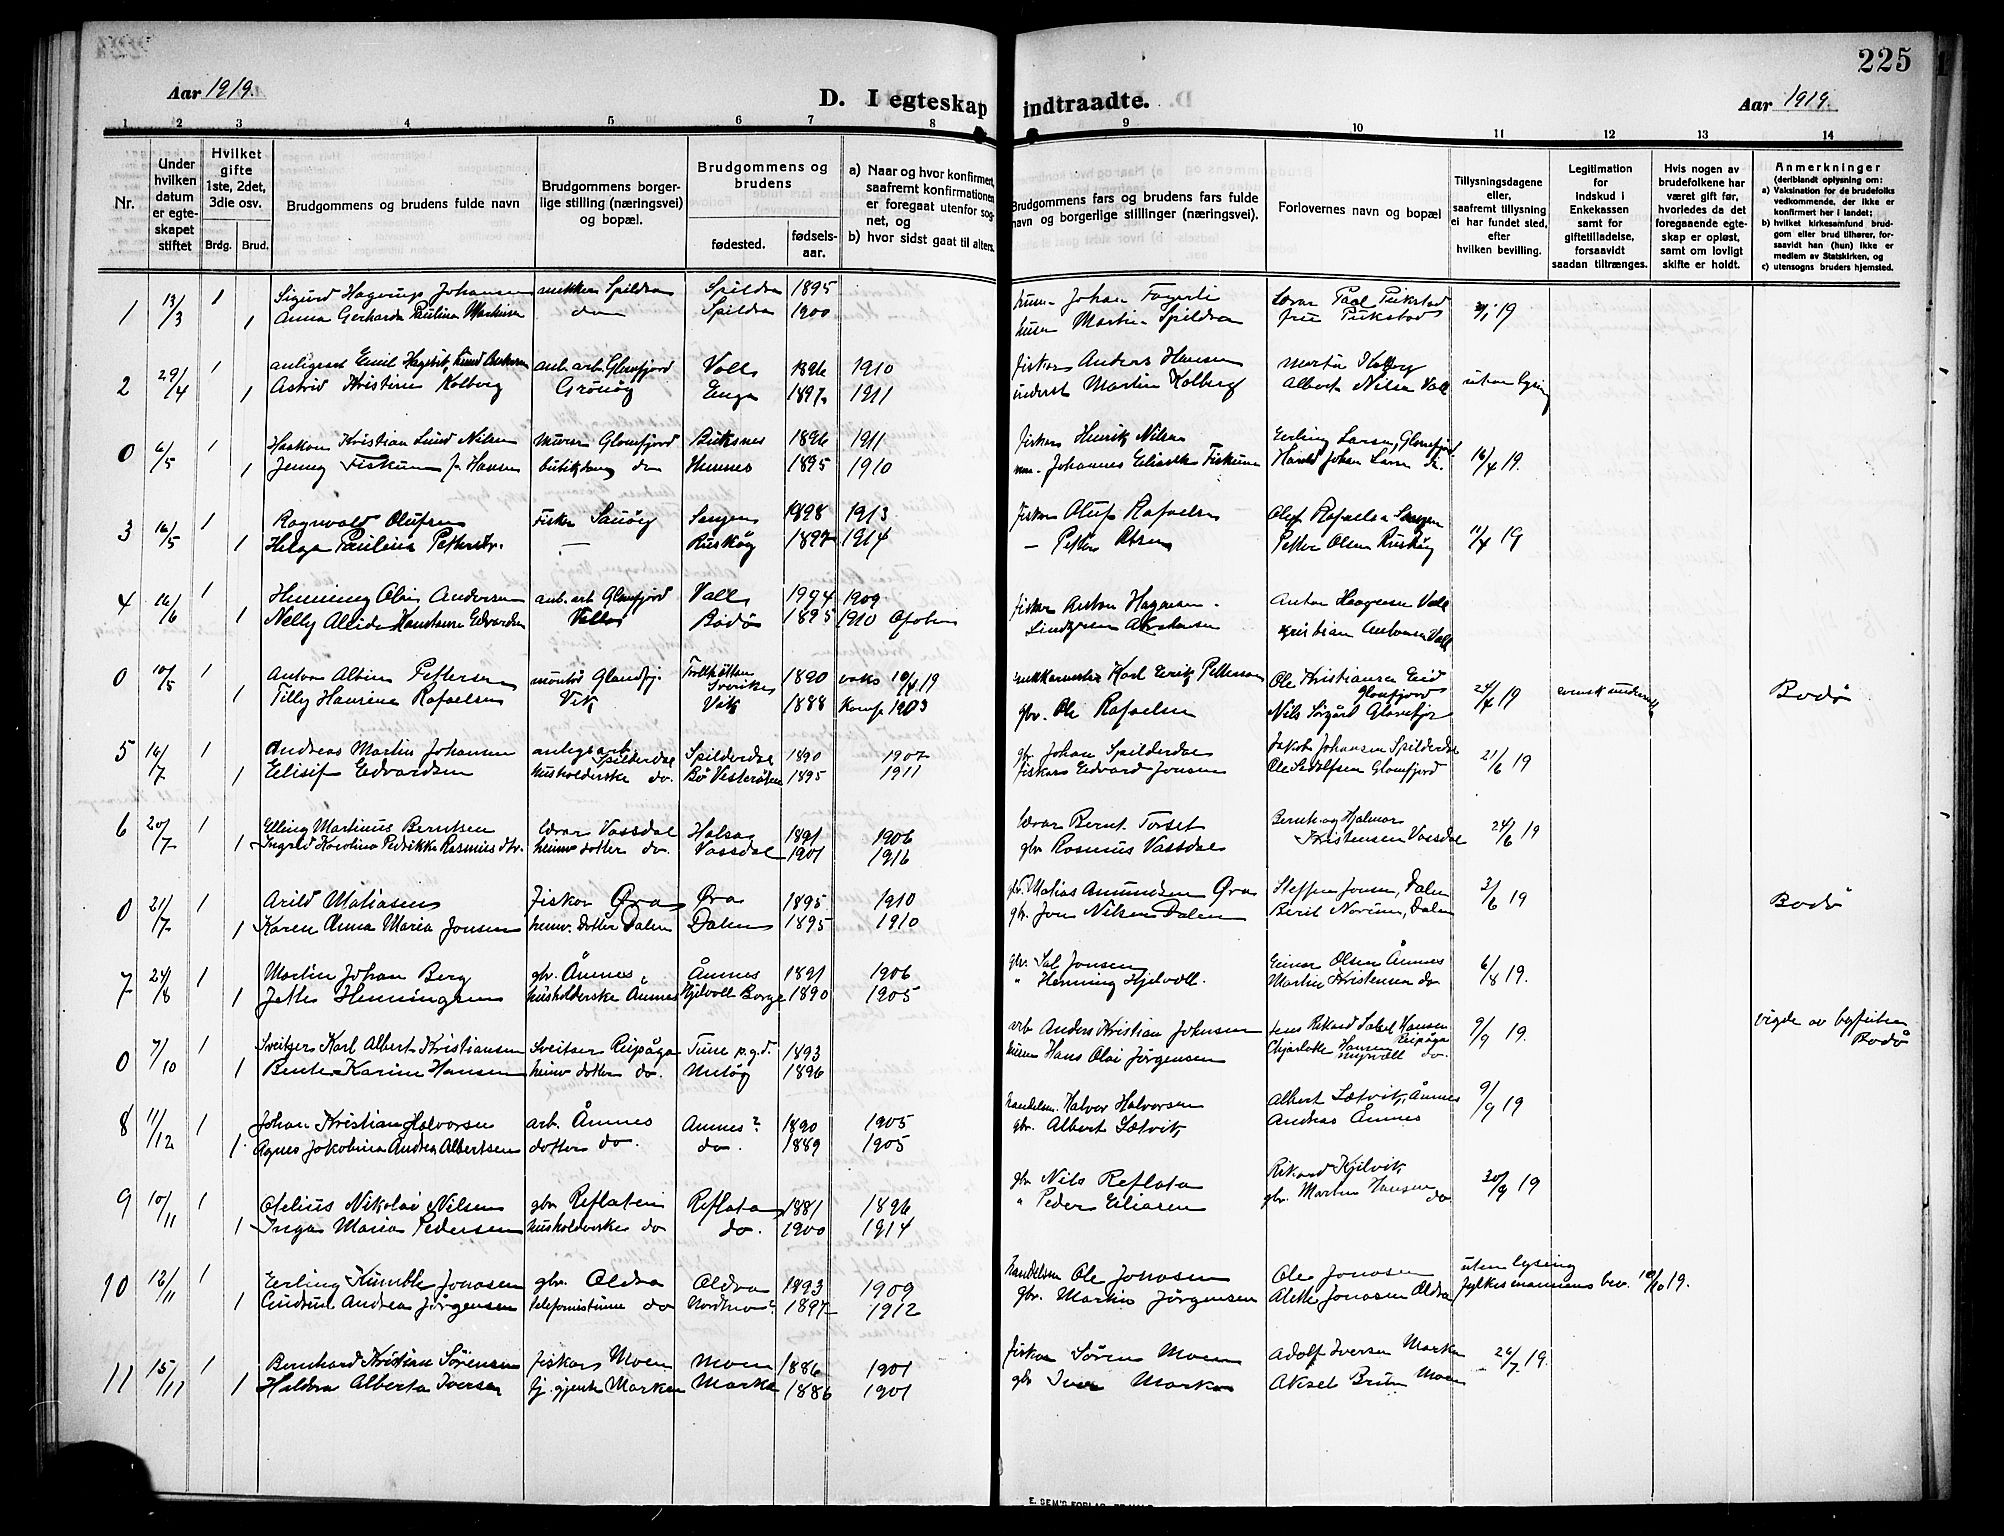 225
Aar 1919.
D. I egteskap indtraadte.
Aar 1919.
1 2 3 4 5 6 7 8 9 10 11 12 13 14
Nr.
Under hvilken datum er egteskapet stiftet
Hvilket gifte 1ste, 2det, 3die osv.
Brdg. Brud.
Brudgommens og brudens fulde navn
Brudgommens borgerlige stilling (næringsvei) og bopæl.
Brudgommens og brudens
fødested.
fødselsaar.
a) Naar og hvor konfirmert, saafremt konfirmationen er foregaat utenfor sognet, og
b) hvor sidst gaat til alters.
Brudgommens fars og brudens fars fulde navn og borgerlige stillinger (næringsvei).
Forlovernes navn og bopæl
Tillysningsdagene eller, saafremt tillysning ei har fundet sted, efter hvilken bevilling.
Legitimation for Indskud i Enkekassen samt for giftetilladelse, forsaavidt saadan tiltrænges.
Hvis nogen av brudefolkene har været gift før, hvorledes da det foregaaende egteskap er opløst, samt om lovligt skifte er holdt.
Anmerkninger
(deriblandt oplysning om:
a) Vaksination for de brudefolks vedkommende, der ikke er konfirmert her i landet;
b) hvilket kirkesamfund brudgom eller brud tilhører, forsaavidt han (hun) ikke er medlem av Statskirken, og
c) utensogns bruders hjemsted.
1 13/3 1 Sigurd Hagerup Johansen snikker Spildra Spildra 1895 Johan Fagerli Lærer Paal Pukstad 19
1 Anna Gerharda Paulina Martinsen do Spildra 1900 Martin Spildra fru Pukstad
2 29/4 1 anl. arb. Glomfjord Valls 1896 1910 fisker Anders Hansen Martin Kolberg
1 Astrid Kristine Kolberg Grönöy Enga 1897 1911 inderst Martin Kolberg Albert Nilsen Vall uten lysing
0 6/5 1 Haakon Kristian Lund Nilsen murer Glomfjord Buksnes 1896 1911 fisker Henrik Nilsen Erling Larsen, Glomfjord
1 Jenny Fiskum f. Hansen do Hemnes 1895 1910 Johannes Fiskum Harald Johan Larsen do. 16/4 19.
3 16/5 1 Ragnvald Olufsen Fisker Sauöy Sengen 1898 1913 fisker Oluf Rafaelsen Oluf Rafaelsen Sengen
1 Helga Pauline Pettersdtr. — Riskög 1897 1914 — Petter Olsen Petter Olsen 11/4 19
4 16/6 1 Henning Olai Andersen anl. arb Glomfjord Valls 1894 1909 fisker Anton Hagensen Anton Haagensen Vall
1 Nelly Alida Konstanse Edvardsen Valls Bodø 1895 1910 Ofoten Kristian Antonsen Vall
0 10/5 1 Anton Albin Pettersen montör Glomfj. Trollhättan Sverike 1890 vaks 10/4 19 Karl Erik Pettersson Ole Kristiansen Eid Glomfjord 24/4 19 svensk
1 Tilly Hansine Rafaelsen Vik Vik 1888 konf 1903 gbr. Ole Rafaelsen Nils Sörgård Glomfjor Bodö
5 16/7 1 Andreas Martin Johansen anlegsarb. Spilderdal Spilderdal 1890 1907 gbr Johan Spilderdal Jakob Johansen Spilderdal 21/6 19
1 Elisif Edvardsen husholderske do. Bö Vesterålen 1895 1911 fisker Edvard Jensen Ole Adolfsen Glomfjord
6 20/7 1 Elling Martinus Berntsen lærer Vassdal Halsa 1891 1906 lærer Bernt Torset Bernh. og Hjalmar
1 Ingrid Karolina Fedrikke Rasmusdtr. heimv. dotter do. Vassdal 1901 1916 gbr Rasmus Vassdal Kristensen Vassdal 24/6 19
0 21/7 1 Arild Matiasen fisker Öra Öra 1895 1910 gbr. Matias Amundsen Öra Steffen Jensen, Dalen 3/6 19
1 Karen Anna Maria Jonsen heimv. dotter Dalen Dalen 1895 1910 gbr. Jon Nilsen Dalen Berit Norum, Dalen Bodö
7 24/8 1 Martin Johan Berg gbr. Åmnes, Åmnes 1891 1906 gbr. Sal Jonsen Einar Olsen Åmnes 6/8 19.
1 Jette Henningsen husholderske Åmnes Kjelvoll Borge 1890 1905 " Henning Kjelvoll. Martin Kristensen do
0 7/10 1 Sveitser Karl Albert Kristiansen Sveitser Reipåga Tune p.g.d. 1893 arb Anders Kristian Johnsen Jens Rikard Salvel Hansen Reipåga 9/9 19. vigde av byfuten Bodö
1 Bente Karine Hansen heimv dotter do. Meløy 1896 Hans Olai Jörgensen Charlotte Hansen myrvoll do.
8 11/12 1 Johan Kristian Halvorsen arb. Åmnes Åmnes? 1890 1905 handelsm. Halvor Halvorsen Albert Sætvik, Åmnes 9/9 19
1. Agnes Jakobina Andrea Albertsen dotter do. do. 1889 1905 gbr. Albert Sætvik Andreas Åmnes
9 10/11 1 Otelius Nikolai Nilsen gbr Reflaten Reflata 1881 1896 gbr Nils Reflata Rikard Kjelvik 30/9 19
1 Inga Maria Pedersen husholderske do do. 1900 1914 " Peder Eliasen gbr. Martin Hansen do
10 12/11 1 Erling Kumble Jonasen gbr. Oldra Oldra 1893 1909 handelsm Ole Jonasen Ole Jonasen uten lysing
1 Gudrun Andrea Jörgensen telefonistinne do Nordmo? 1897 1912 gbr. Martin Jörgensen Alette Jonasen Oldra fylkesmannens bev. 10/10 19.
11 15/11 1 Bernhard Kristian Sörensen fisker Moen Moen 1886 1901 fisker Sören Moen Adolf Iversen Marka 26/7 19.
1 Haldra Alberta Iversen tj. gjente Marken Marka 1886 1901 gbr Iver Marka Aksel Brun Moen